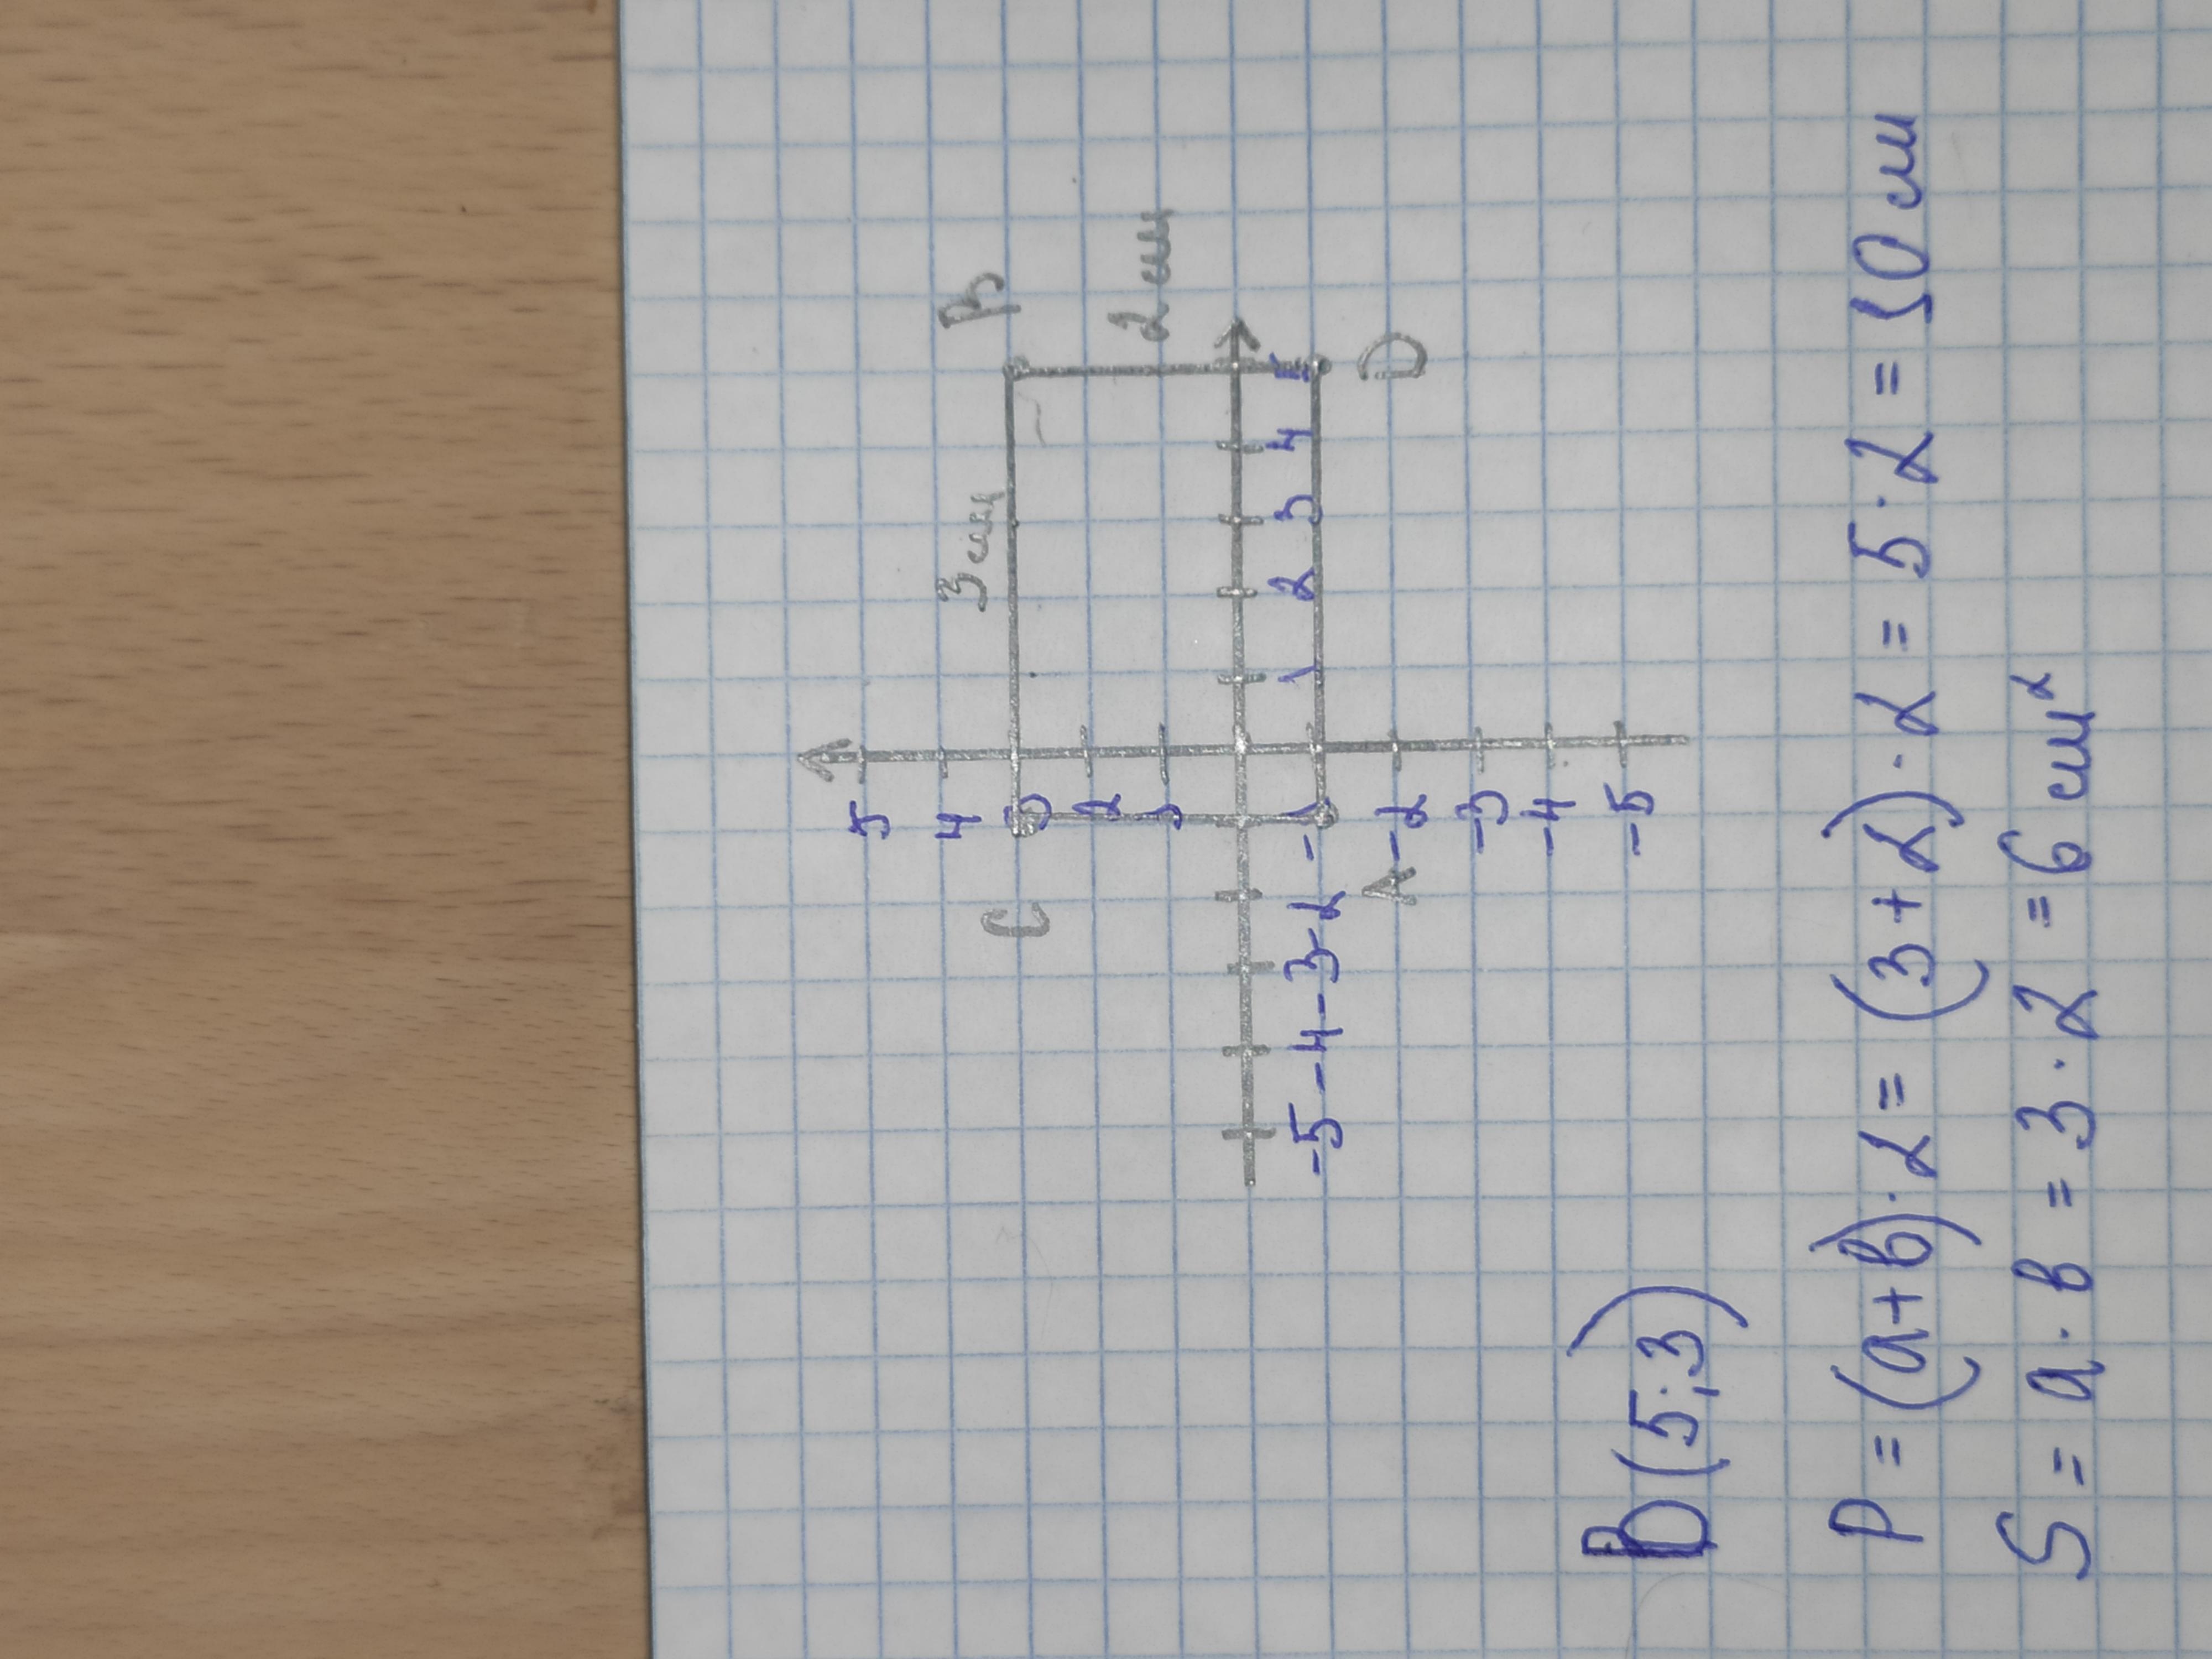 C
3 см
B
2 см
5
4
3
2
1
-5 -4 -3 -2 -1
1 2 3 4 5
A
D
-2
-3
-4
-5
B (5;3)
P = (a+b)·2 = (3+2)·2 = 5·2 = 10 см
S = a·b = 3·2 = 6 см²